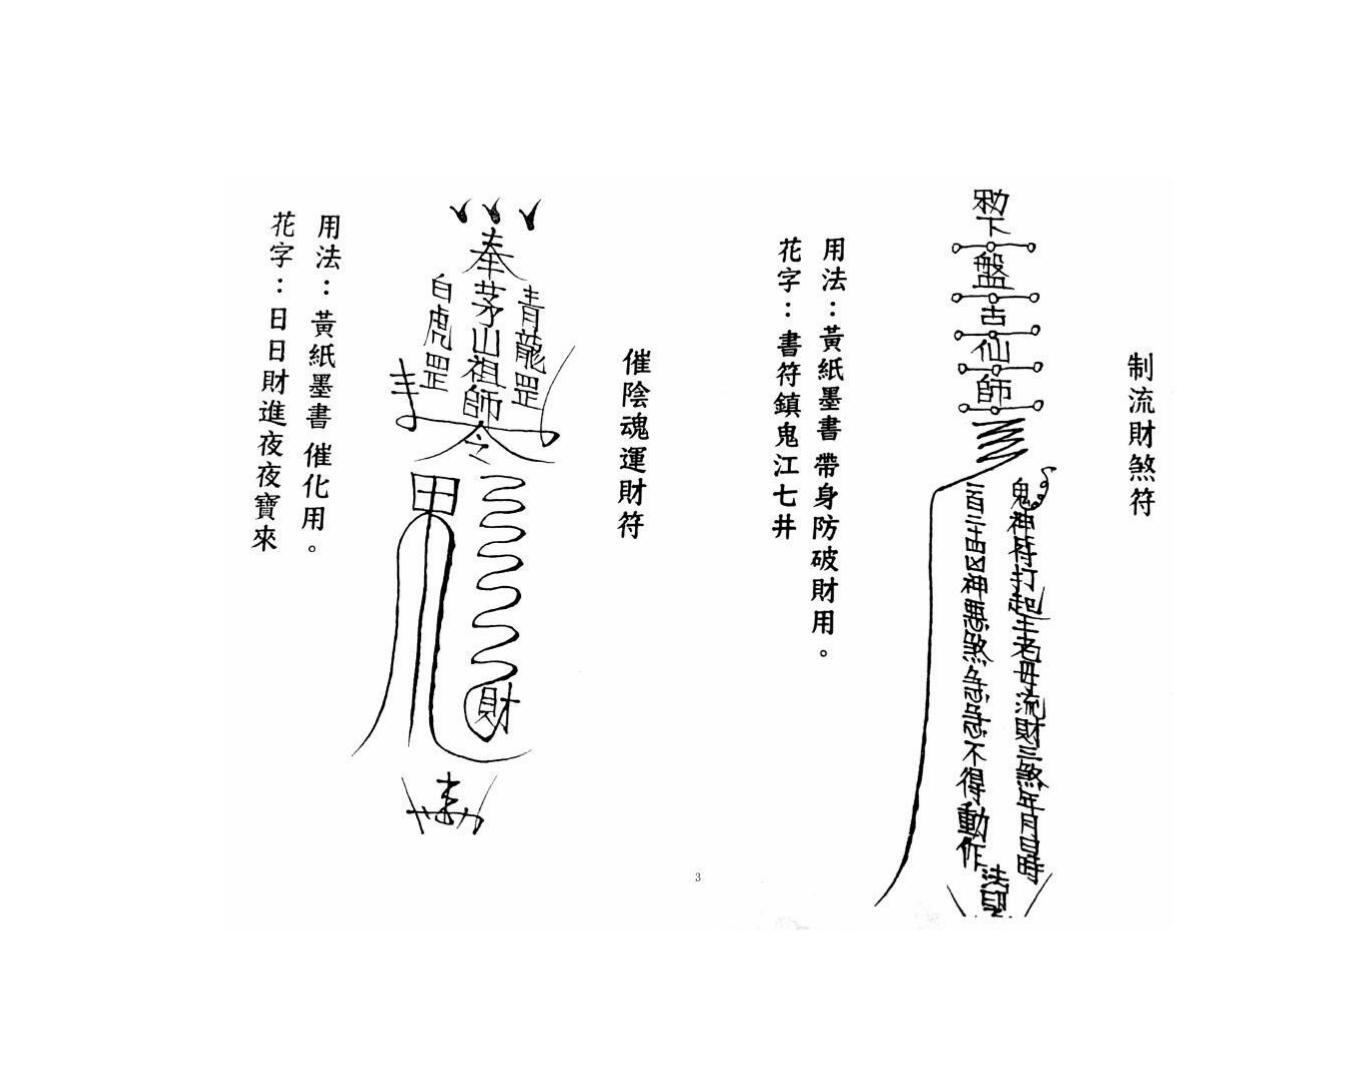 制流財煞符
鬼神符打起王老母流財三煞年月日時
勅下盤古仙師
一百二十四凶神惡煞急急不得動作
法印
用法：黃紙墨書 帶身防破財用。
花字：書符鎮鬼江七井
催陰魂運財符
青龍罡
奉茅山祖師令
白虎罡
財
用法：黃紙墨書 催化用。
花字：日日財進夜夜寶來
3